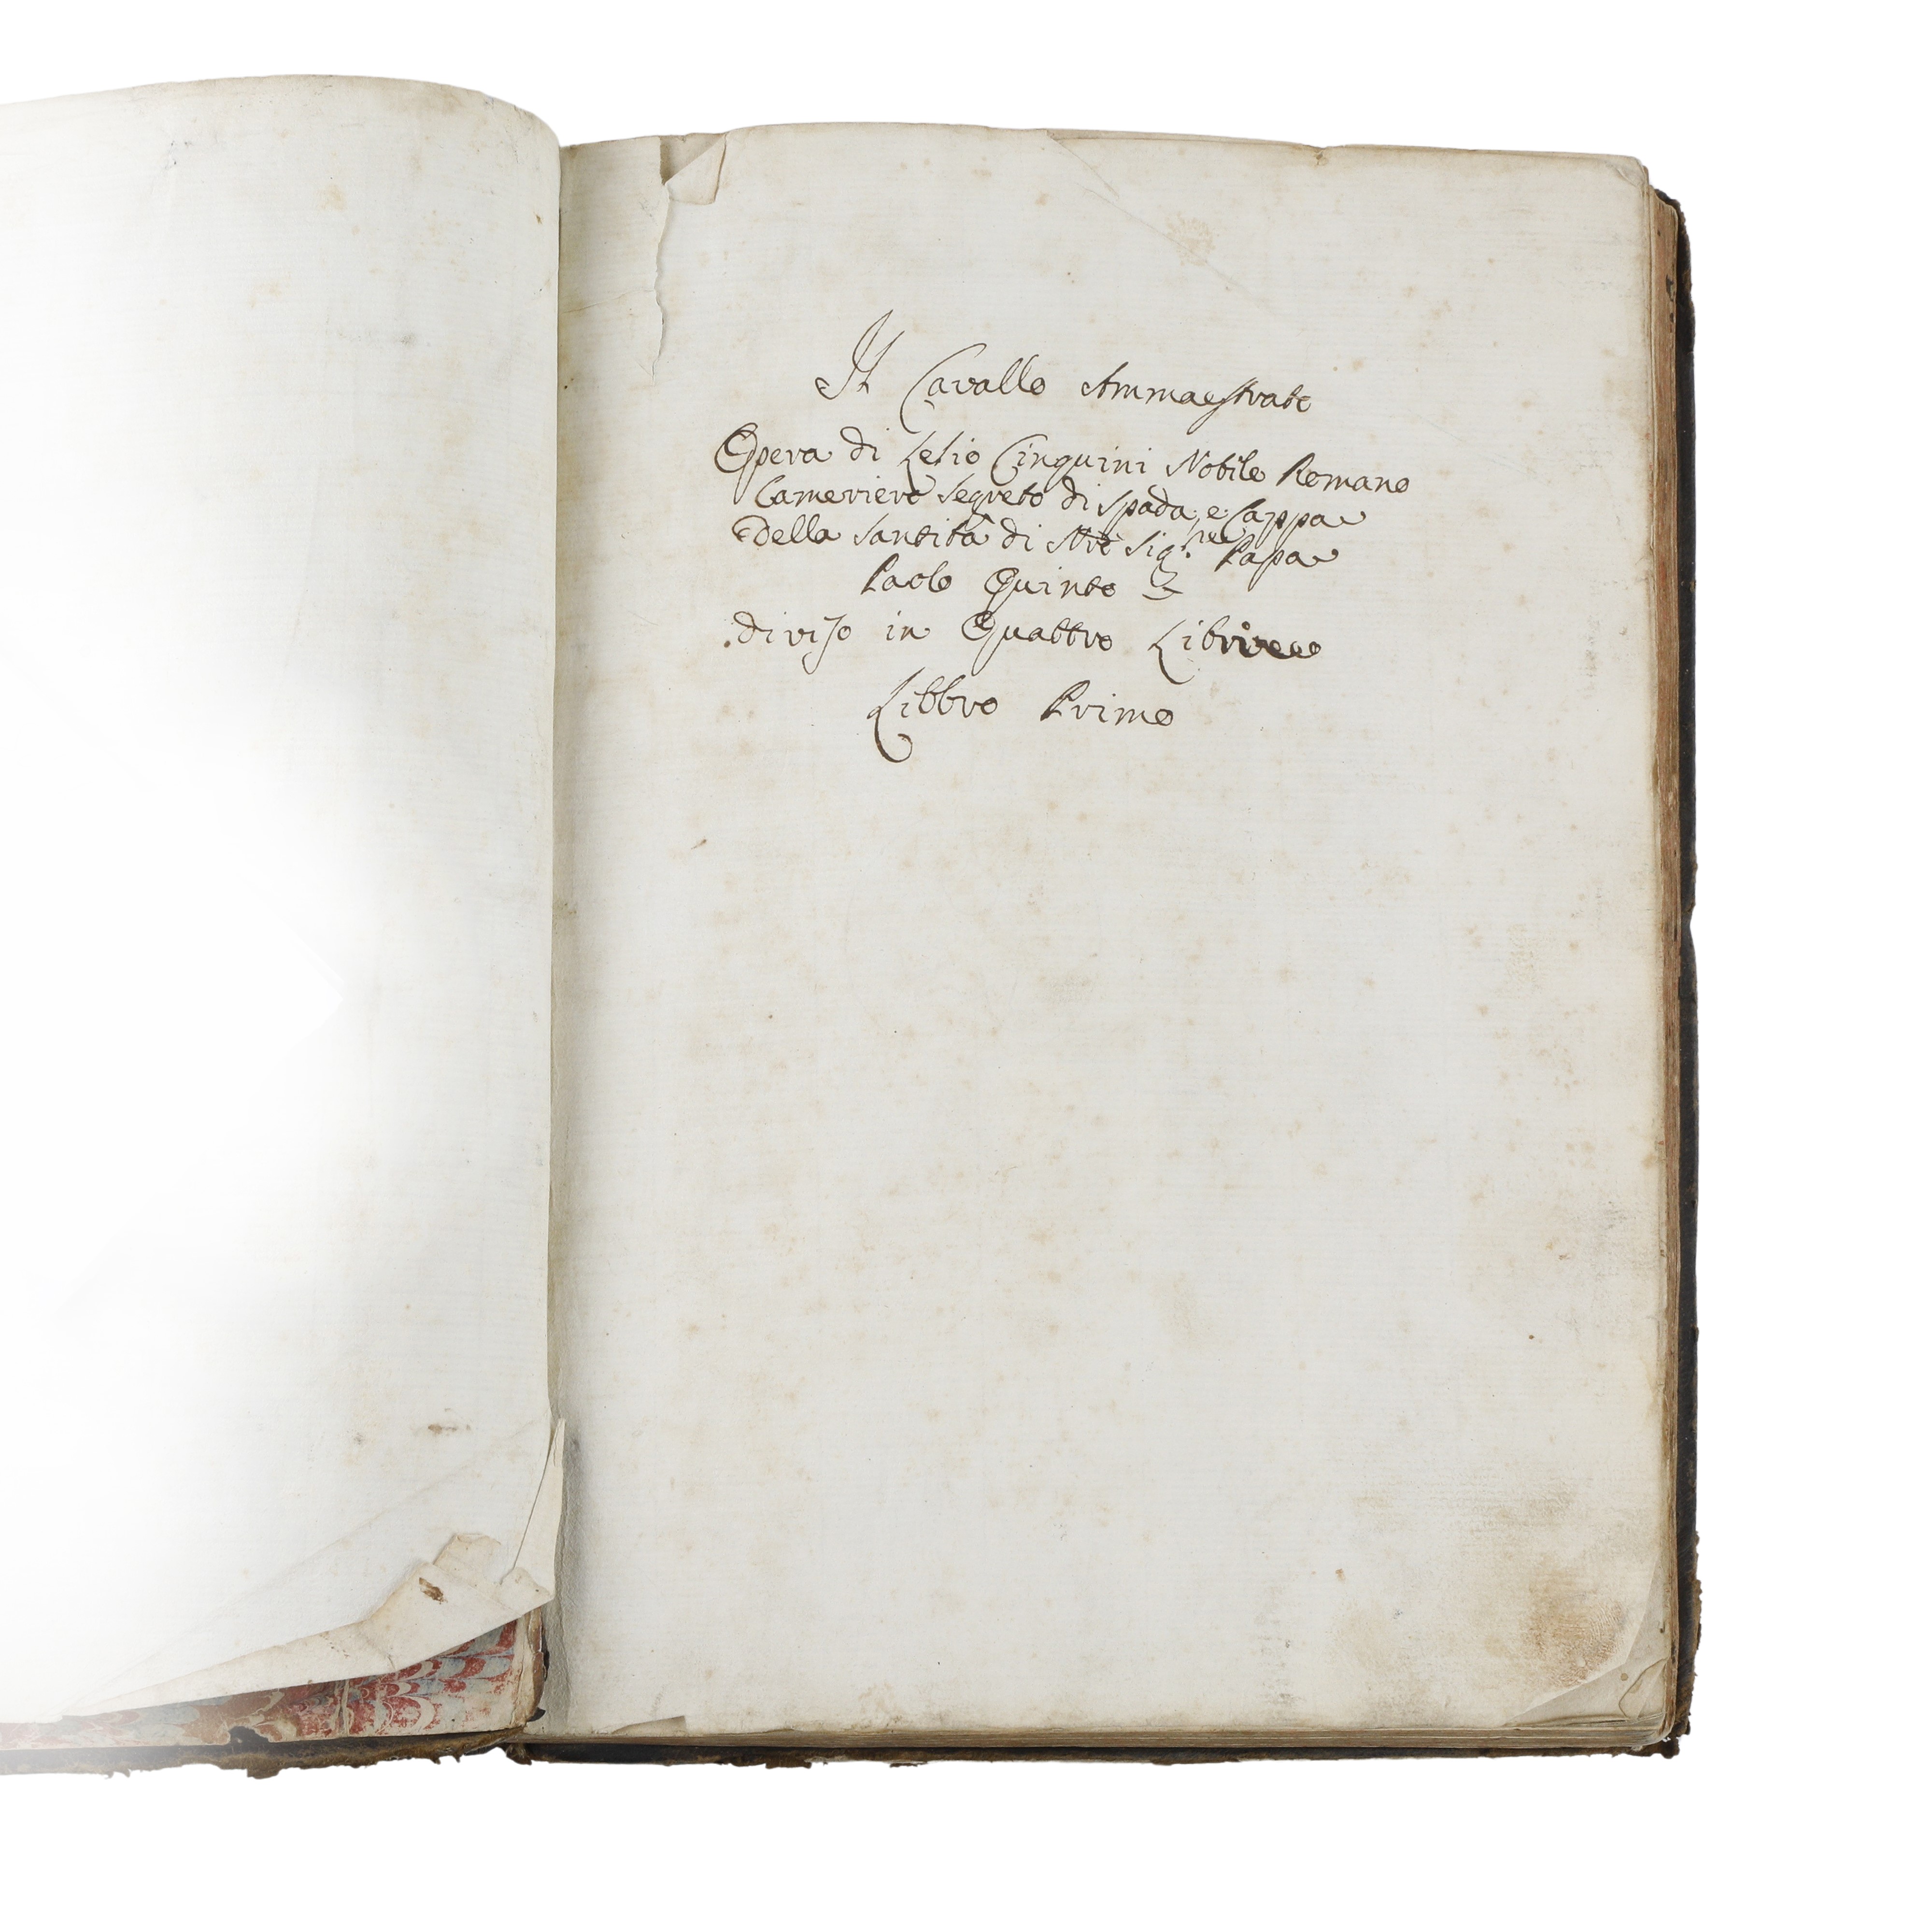 Il Cavallo Ammaestrato
Opera di Lelio Cinquini Nobile Romano
Cameriere segreto di spada, e Cappa
Della Santità di Nro Sig.re Papa
Paolo Quinto
diviso in Quattro Libri
Libbro Primo